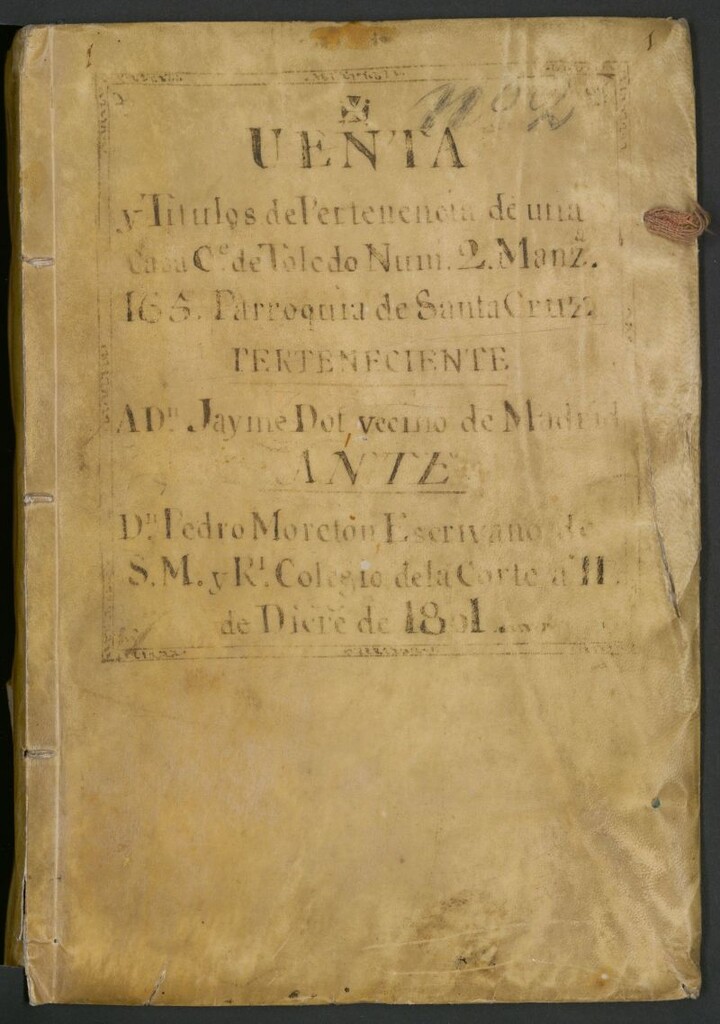 ✠
UENTA
y Titulos de Pertenencia de una
Casa C.e de Toledo Num. 2. Manz.a
165. Parroquia de Santa Cruz
PERTENECIENTE
A D.n Jayme Dot, vecino de Madrid
ANTE
D.n Pedro Moretón Escrivano de
S.M. y R.l Colegio dela Corte a 11
de Dicre de 1801.